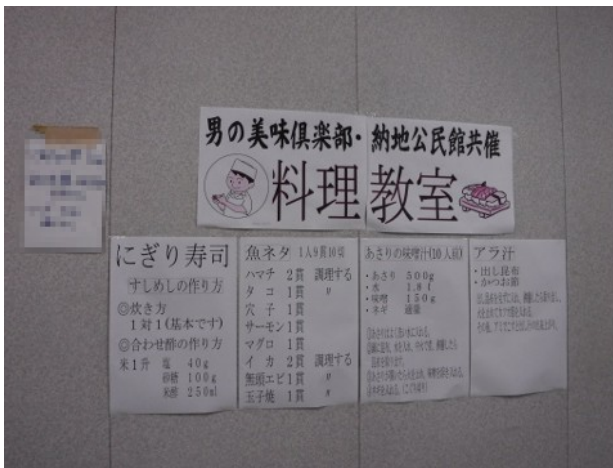 男の美味倶楽部・納地公民館共催
料理教室
にぎり寿司
すしめしの作り方
◎炊き方
1対1(基本です)
◎合わせ酢の作り方
米1升 塩 40g
砂糖 100g
米酢 250ml
魚ネタ 1人9貫10切
ハマチ 2貫 調理する
タコ 1貫 〃
穴子 1貫
サーモン1貫
マグロ 1貫
イカ 2貫 調理する
無頭エビ1貫 〃
玉子焼 1貫 〃
あさりの味噌汁(10人前)
・あさり 500g
・水 1.8ℓ
・味噌 150g
・ネギ 適量
アラ汁
・出し昆布
・かつお節